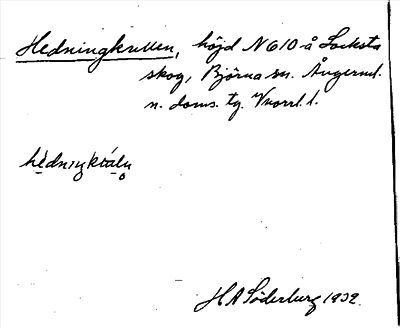 Hedningkullen, höjd N 610 å Locksta
skog, Björna sn. Ångerml.
n. doms. tg. Vnorrl. l.
H A Söderburg 1932.